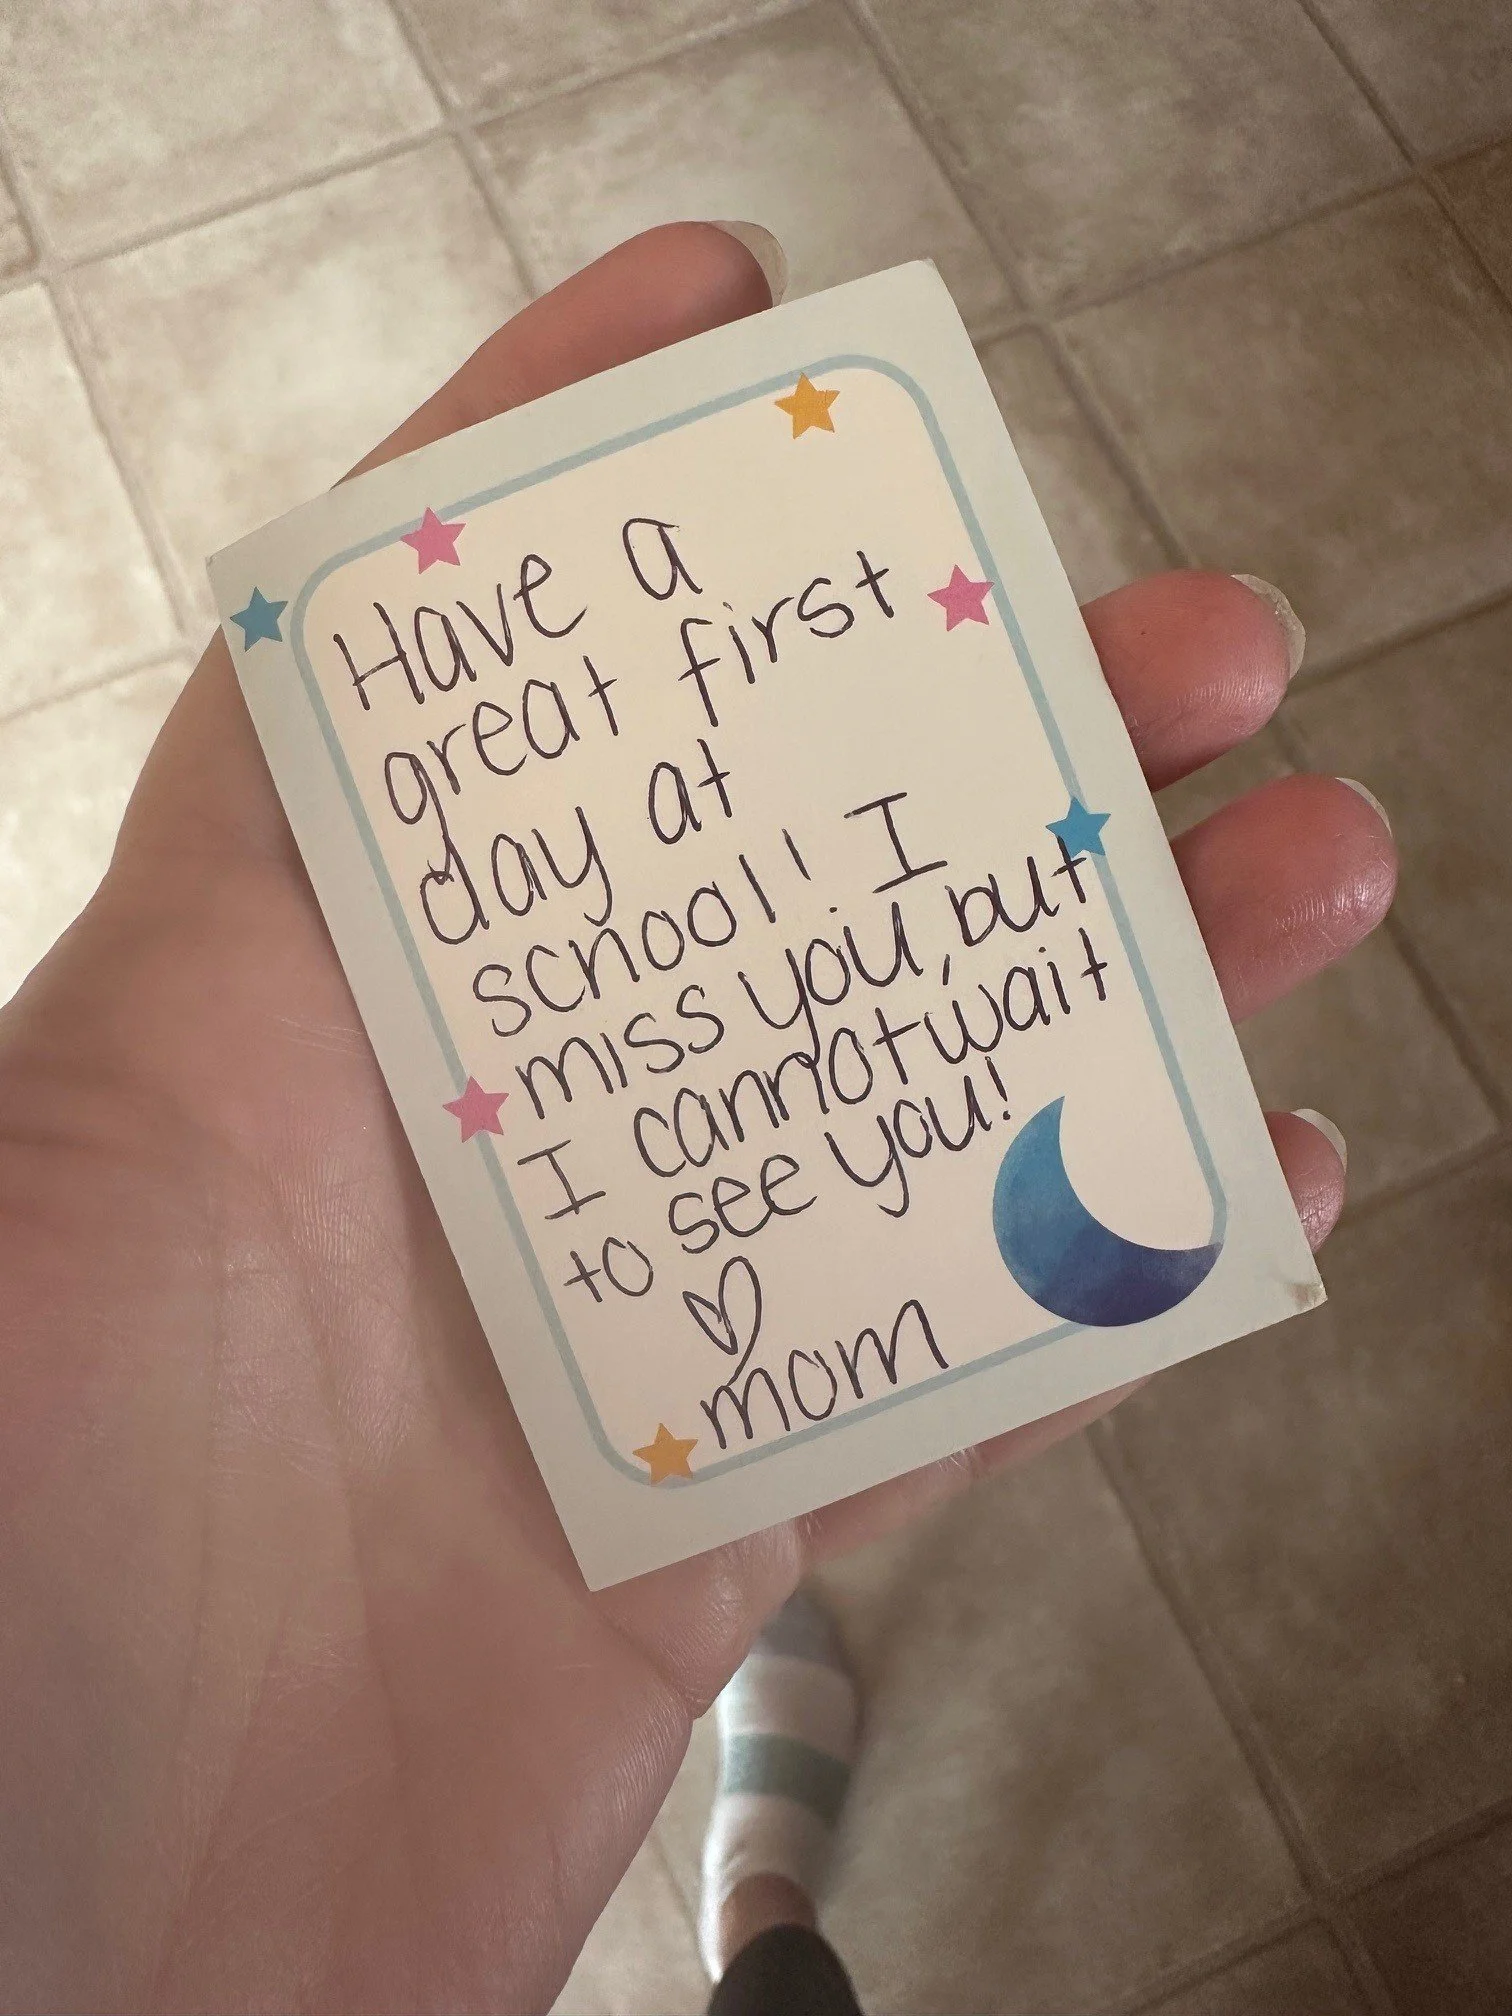 Have a
great first
day at
school! I
miss you, but
I cannot wait
to see you!
♡
mom